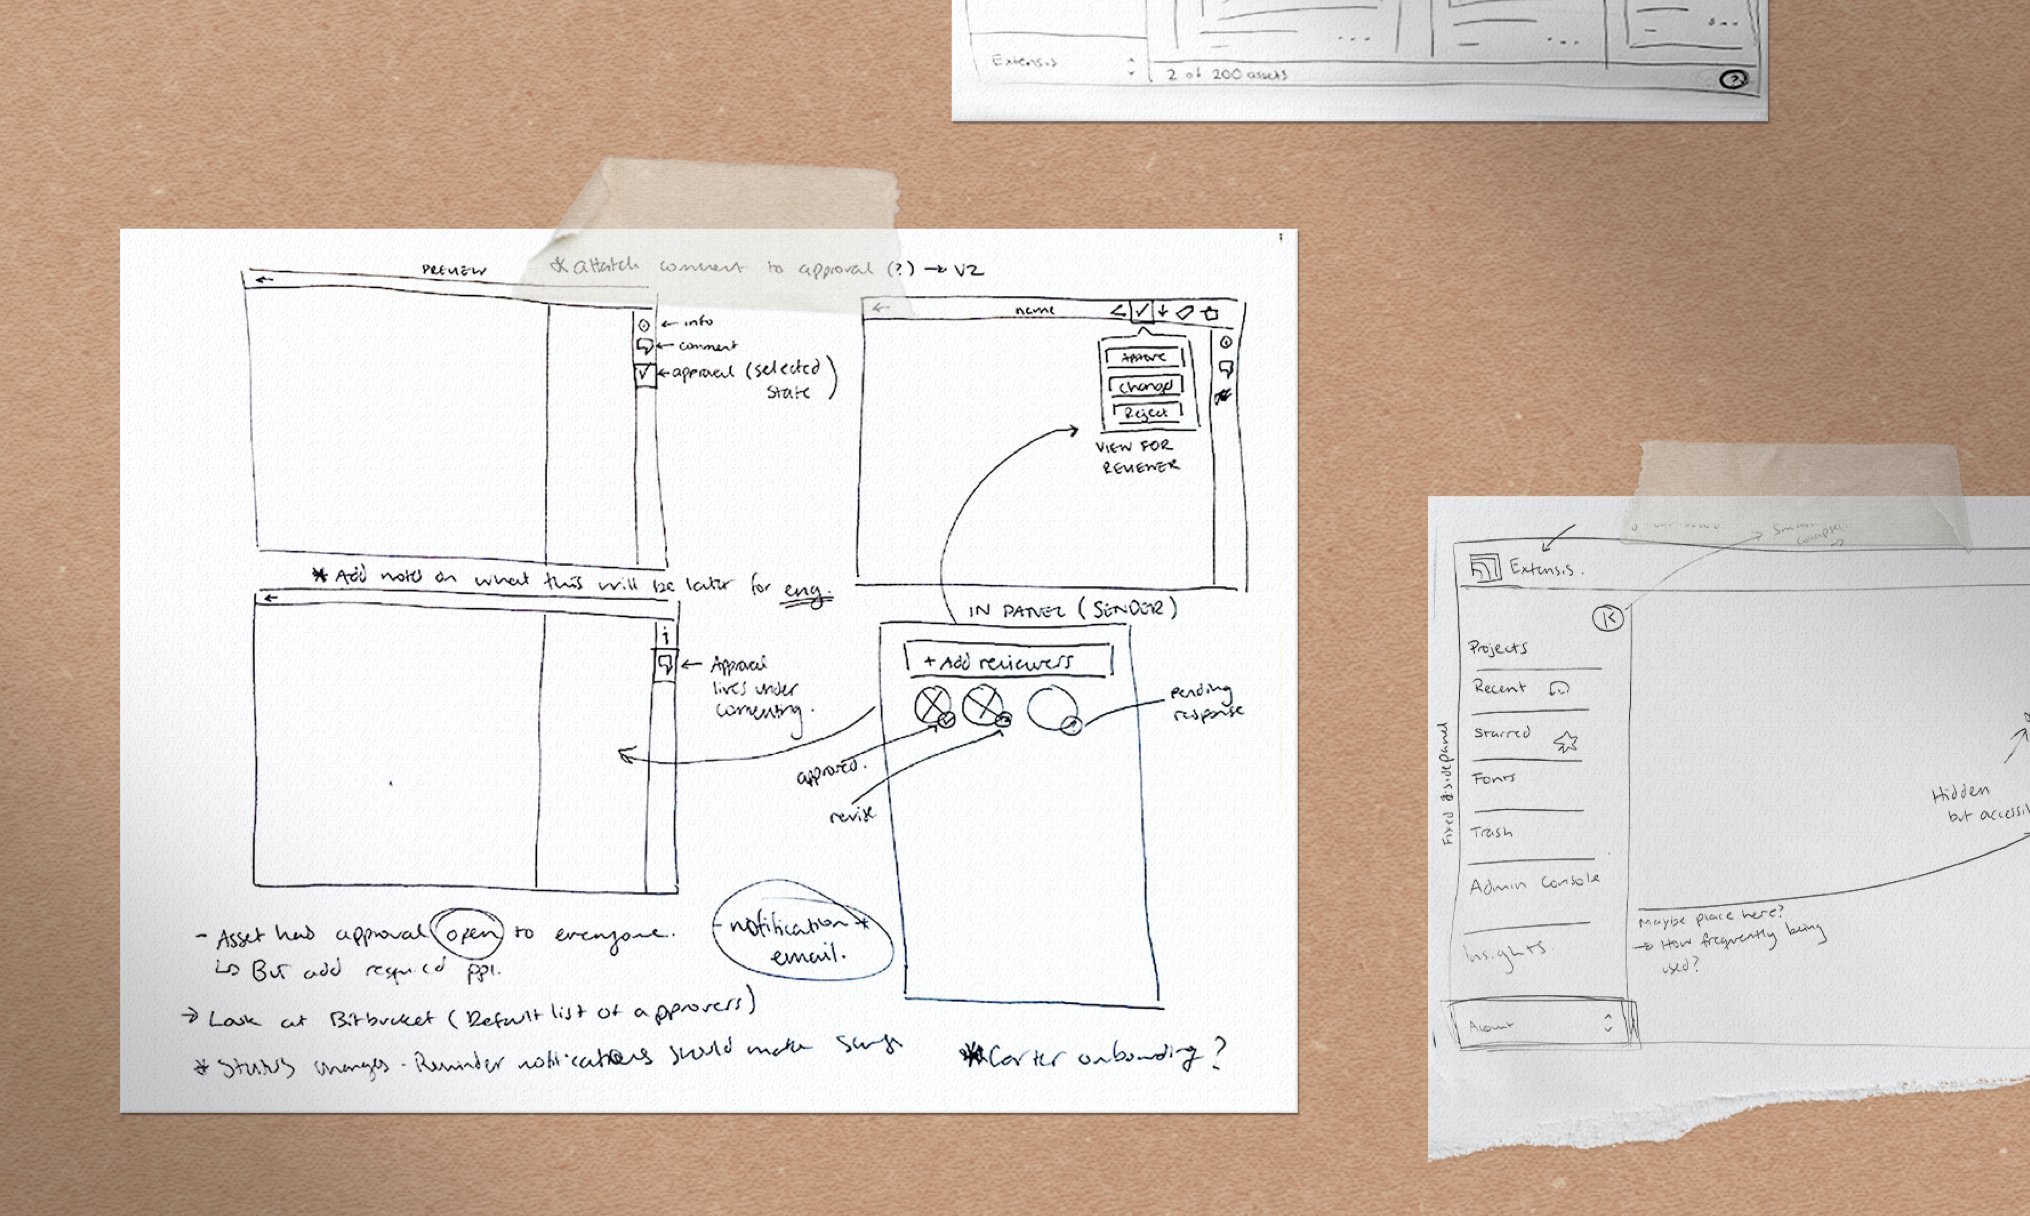 Extensis
2 of 200 assets
?
PREVIEW
* attatch comment to approval (?) → V2
← info
← comment
← approval (selected
state)
* Add notes on what this will be later for eng.
i
← Approval
lives under
commenting.
name
Approve
Changes
Reject
VIEW FOR
REVIEWER
IN PANEL (SENDER)
+ Add reviewers
pending
response
approved.
revise
- Asset has approval open to everyone.
↳ But add required ppl.
- notification *
email.
→ Look at Bitbucket (Default list of approvers)
* Status changes - Reminder notifications should make sense
* Carter onboarding?
Extensis.
Projects
Recent
Starred
Fonts
Trash
Admin Console
Insights
Account
Fixed sidepanel
Hidden
but accessi
Maybe place here?
→ How frequently being
used?